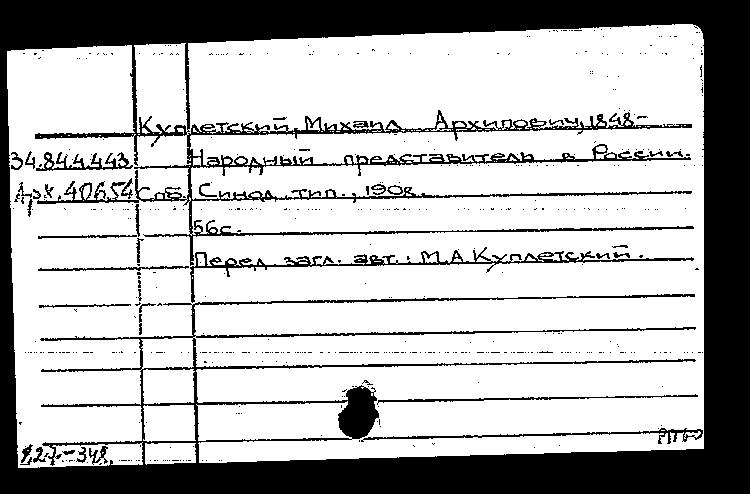 Куплетский, Михаил Архипович, 1848-
34.84.4.443 Народный представитель в России.
Арх. 40654 Спб, Синод. тип., 1908.
56с.
Перед загл. авт.: М.А.Куплетский.